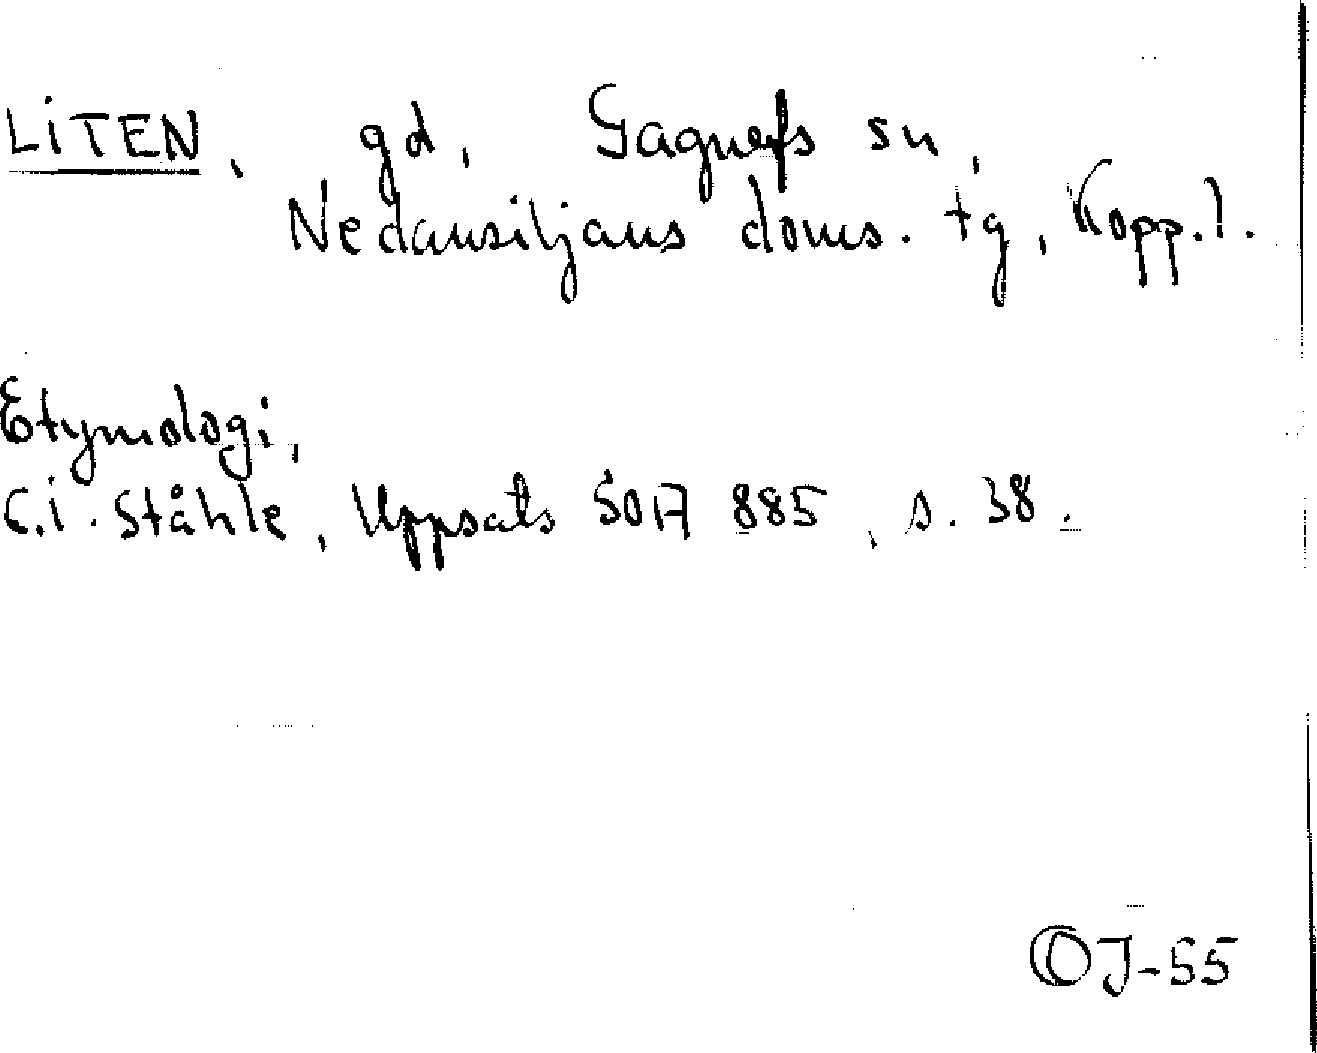 LITEN, gd, Gagnefs sn,
Nedansiljans doms. tg, Kopp. l.
Etymologi,
C.I. Ståhle, Uppsats SOA 885, s. 38.
OJ-55